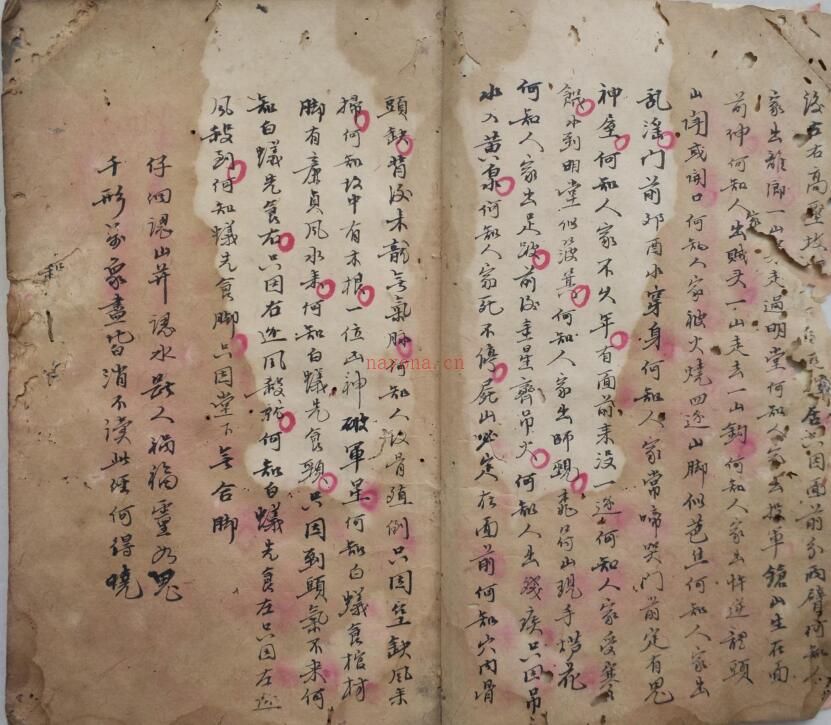 後左右高壓墳 居只因面前分兩臂何知人
家出離鄉一山走過明堂何知人家出投軍鎗山生在面
前仲何知人家出賊子一山走去一山鈎何知人家出忤逆龍頭
山開或開口何知人家被火燒四邊山脚似芭蕉何知人家出
乱滛門前卯酉水穿身何知人家常啼哭門前定有鬼
神壇何知人家不久年有面前来没一邊何知人家受寒
餓水到明堂似簸箕何知人家出師覡 山現手撚花
何知人家出足跛前後 星齊吊火何知人出殘疾只因吊
水入黃泉何知人家死不停屍山必定在面前何知穴内骨
頭缺背後来龍无氣脉何知人改骨殖倒只因空缺風来
掃何知坟中有木根一位凶神破軍星何知白蟻食棺材
脚有亷貞風水来何知白蟻先食頭只因到頭氣不来何
知白蟻先食右只因右边風殺就何知白蟻先食左只因左边
風殺到何知蟻先食脚只因堂下无合脚
仔细認山并認水斷人禍福靈如鬼
千形萬象盡皆消不讀此經何得曉
narona.cn